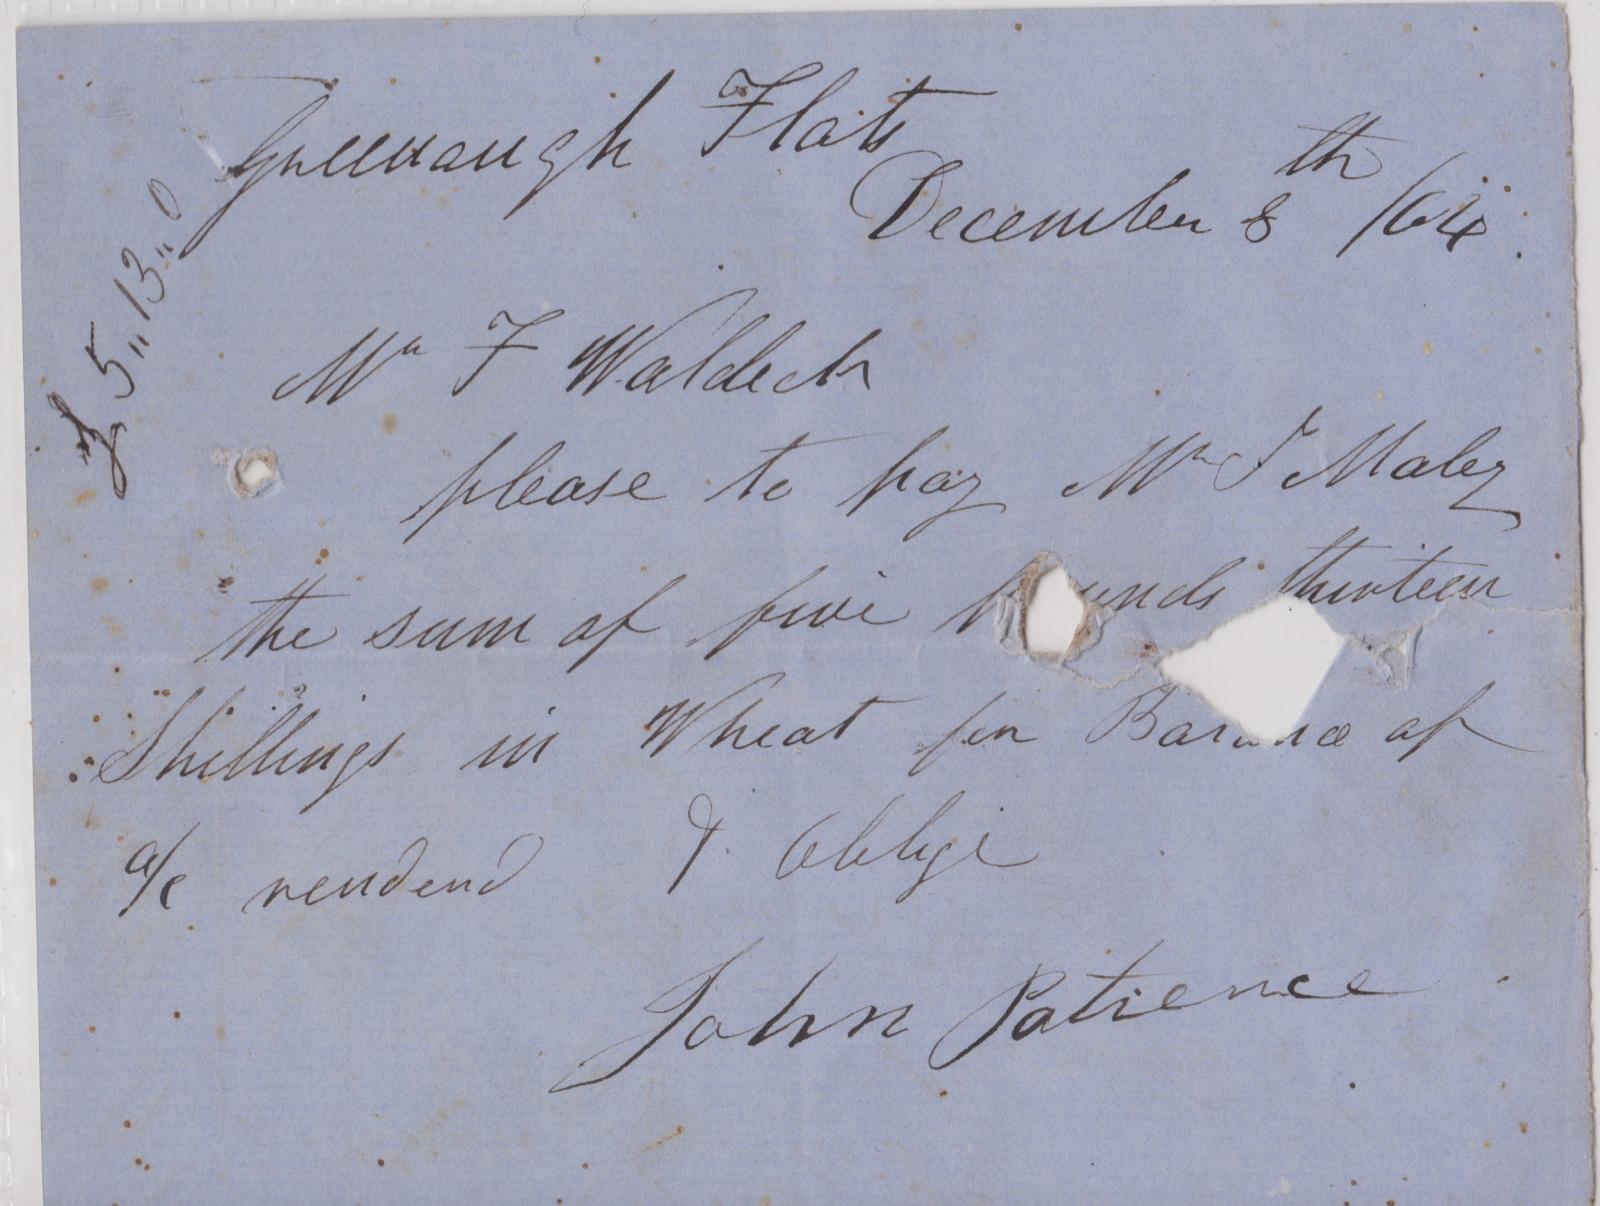 Greenaugh Flats
December 8th /64.
£5,,13,,0
Mr F Waldeck
please to pay Mr J Maley
the sum of five pounds thirteen
Shillings in Wheat for Balance of
a/c renderd & Oblige
John Patience